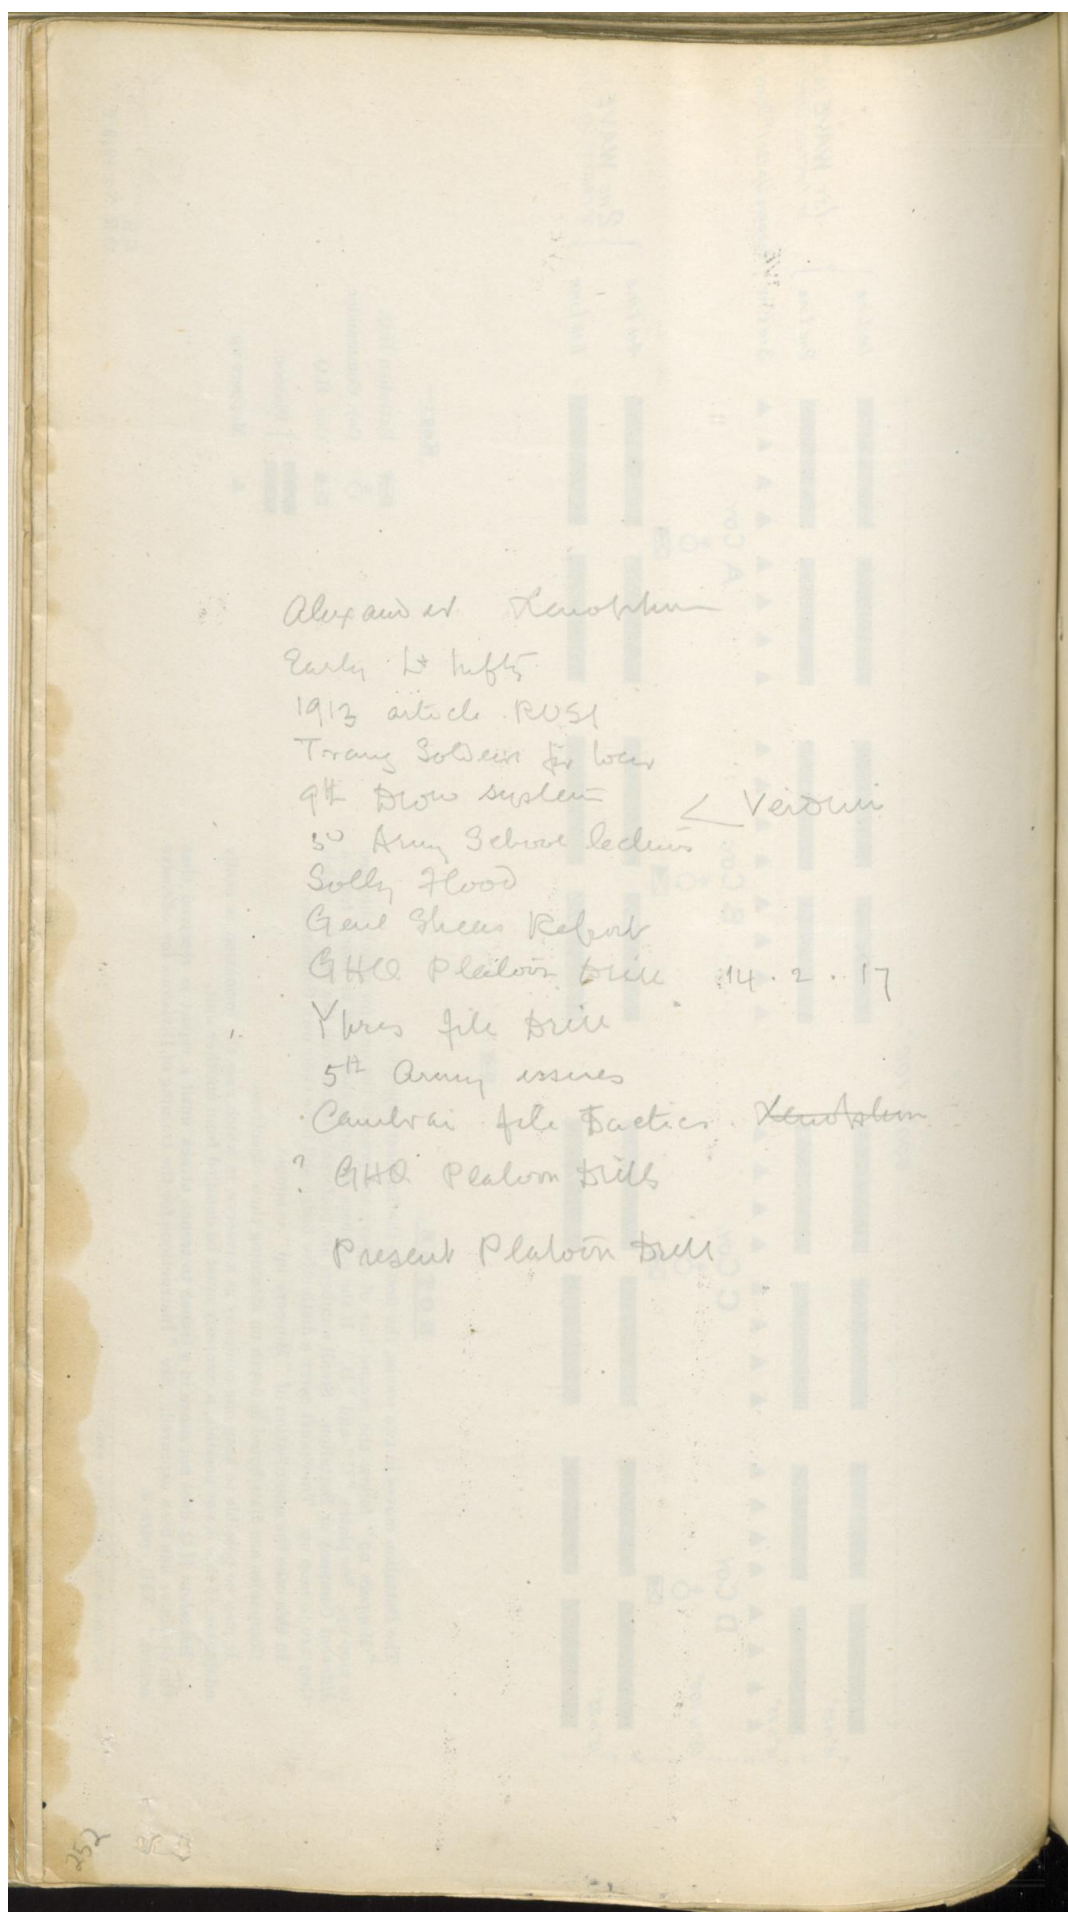 Alexander Xenophon
Early Lt Infty
1913 article RUSI
Trang Soldiers for War
9th Divn system
3rd Army School lectures < Verdun
Solly Flood
Genl Sheas Report
GHQ Platoon Drill 14.2.17
Ypres file Drill
5th Army issues
Cambrai file Tactics. Xenophon
? GHQ Platoon Drills
Present Platoon Drill
252